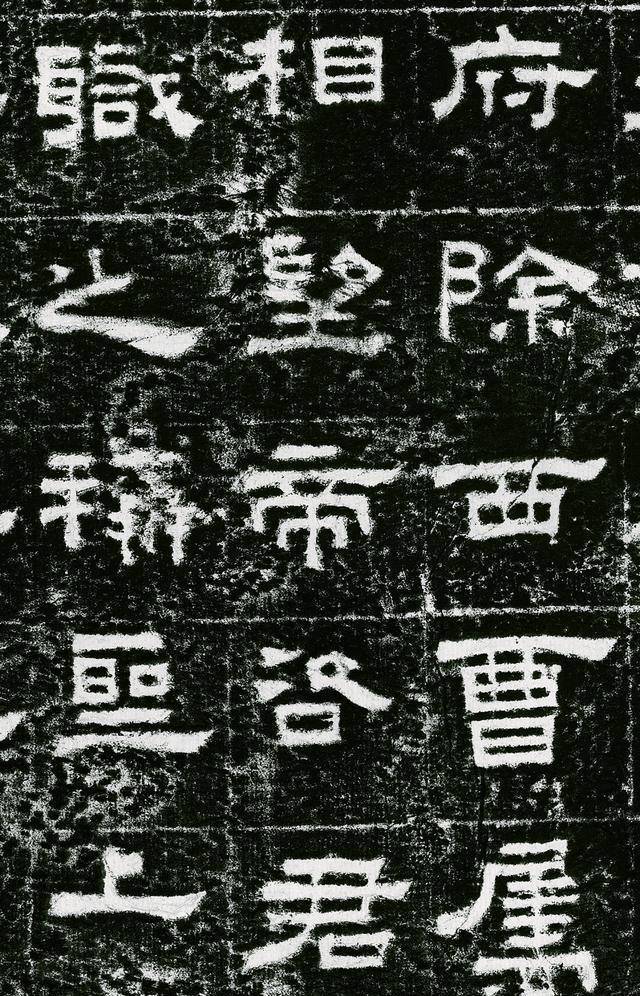 府除西曹屬
相望帝咨君
職之稱聖上